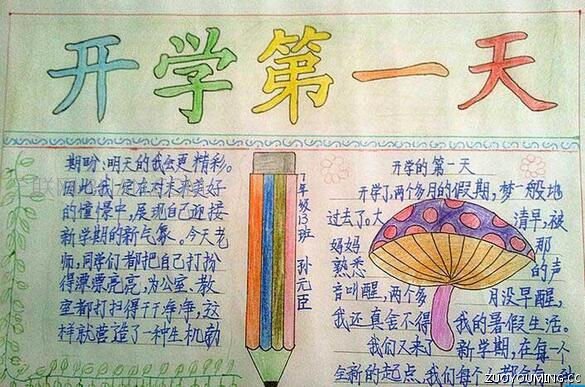 开学第一天
期盼:明天的我会更精彩。
因此我一定在对未来美好
的憧憬中,展现自己迎接
新学期的新气象。今天老
师,同学们都把自己打扮
得漂漂亮亮,为公室、教
室都打扫得干干净净,这
样就营造了一种生机勃
7年级13班 孙元臣
开学的第一天
开学了,两个多月的假期,梦一般地
过去了。大清早,被
妈妈那
熟悉的声
音叫醒,两个多月没早醒,
我还真舍不得我的暑假生活。
我们又来了新学期,在每一个
全新的起点,我们每个
ZUOYOUMING.CC